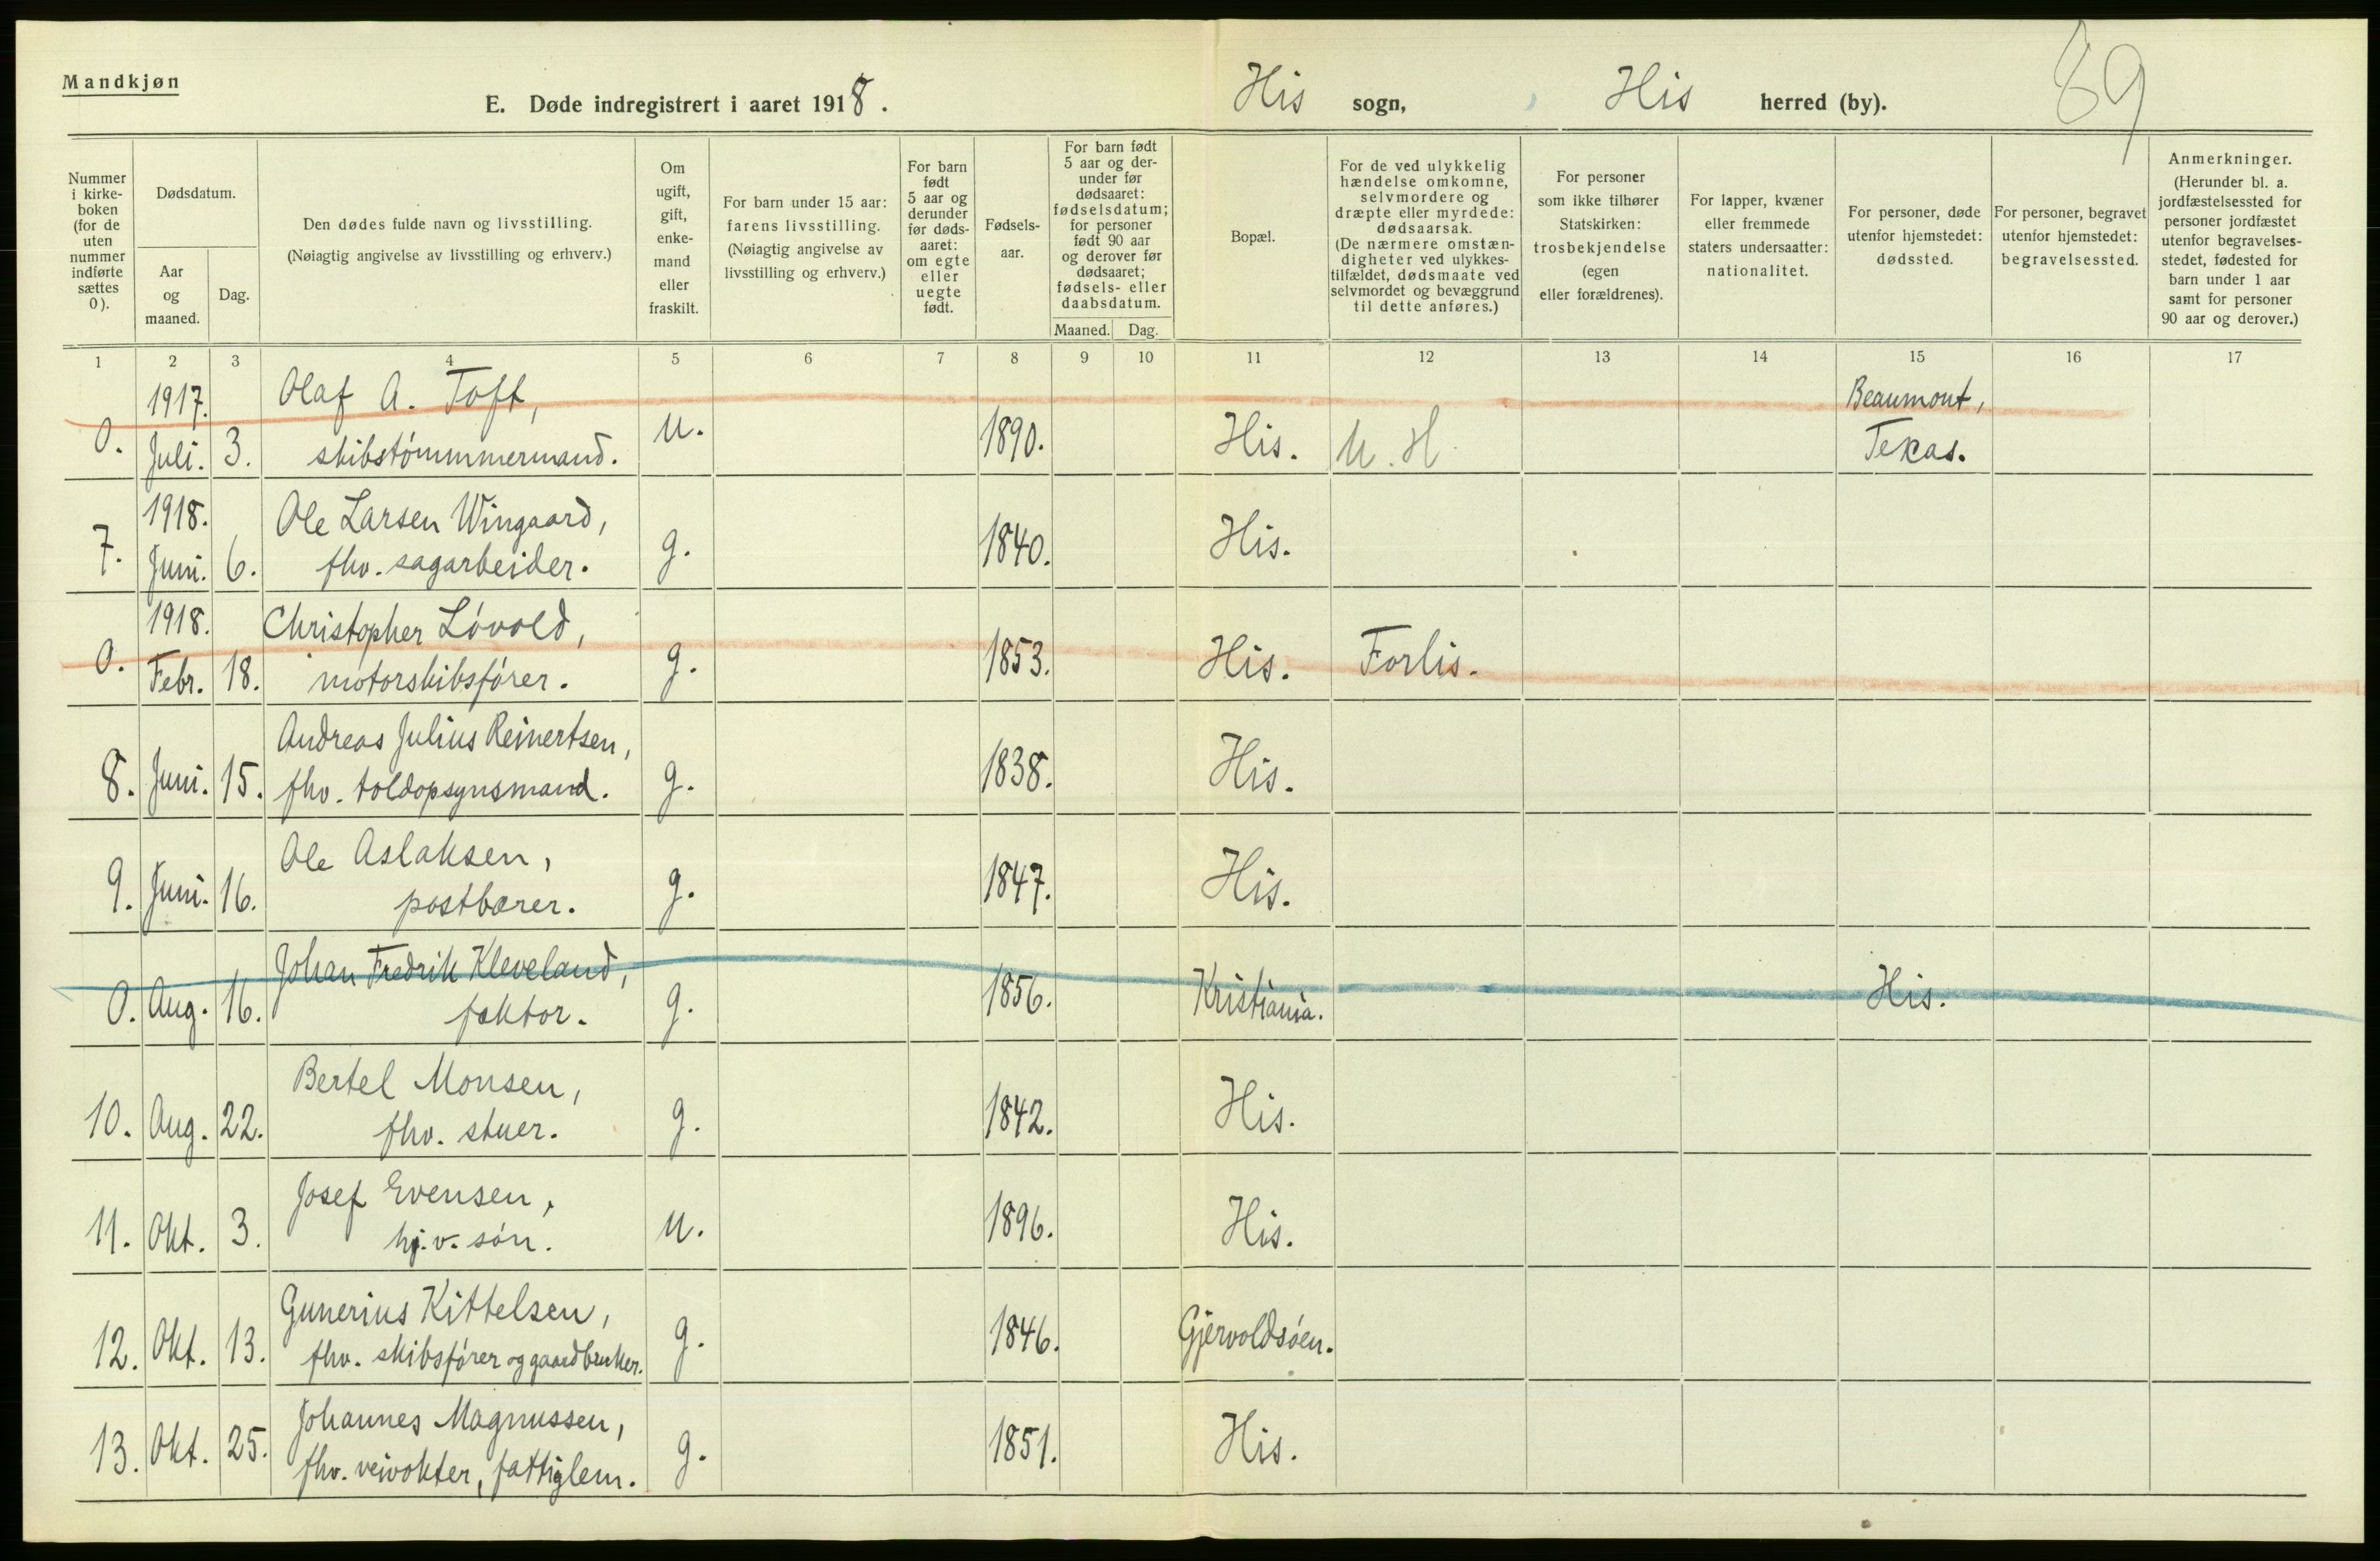 Mandkjøn
E. Døde indregistrert i aaret 1918. His sogn, His herred (by). 89
Nummer i kirkeboken (for de uten nummer indførte sættes 0).
Dødsdatum.
Aar og maaned.
Dag.
Den dødes fulde navn og livsstilling.
(Nøiagtig angivelse av livsstilling og erhverv.)
Om ugift, gift, enkemand eller fraskilt.
For barn under 15 aar: farens livsstilling.
(Nøiagtig angivelse av livsstilling og erhverv.)
For barn født 5 aar og derunder før dødsaaret: om egte eller uegte født.
Fødselsaar.
For barn født 5 aar og derunder før dødsaaret: fødselsdatum; for personer født 90 aar og derover før dødsaaret; fødsels- eller daabsdatum.
Maaned. Dag.
Bopæl.
For de ved ulykkelig hændelse omkomne, selvmordere og dræpte eller myrdede: dødsaarsak.
(De nærmere omstændigheter ved ulykkestilfældet, dødsmaate ved selvmordet og bevæggrund til dette anføres.)
For personer som ikke tilhører Statskirken: trosbekjendelse (egen eller forældrenes).
For lapper, kvæner eller fremmede staters undersaatter: nationalitet.
For personer, døde utenfor hjemstedet: dødssted.
For personer, begravet utenfor hjemstedet: begravelsessted.
Anmerkninger.
(Herunder bl. a. jordfæstelsessted for personer jordfæstet utenfor begravelsesstedet, fødested for barn under 1 aar samt for personer 90 aar og derover.)
1 2 3 4 5 6 7 8 9 10 11 12 13 14 15 16 17
1917. Olaf A. Toft, Beaumont,
0. Juli. 3. skibstømmmermand. u. 1890. His. U. H Texas.
1918. Ole Larsen Wingaard,
7. Juni. 6. fhv. sagarbeider. g. 1840. His.
1918. Christopher Lóvold,
0. Febr. 18. motorskibsfórer. g. 1853. His. Forlis.
Andreas Julius Reinertsen,
8. Juni. 15. fhv. toldopsynsmand. g. 1838. His.
Ole Aslaksen,
9. Juni. 16. postbærer. g. 1847. His.
Johan Fredrik Kleveland,
0. Aug. 16. faktor. g. 1856. Kristiania. His.
Bertel Monsen,
10. Aug. 22. fhv. stuer. g. 1842. His.
Josef Evensen,
11. Okt. 3. hj.v. són. u. 1896. His.
Gunerius Kittelsen,
12. Okt. 13. fhv. skibsfórer og gaardbruker. g. 1846. Gjervoldsóen.
Johannes Magnussen,
13. Okt. 25. fhv. veivokter, fattiglem. g. 1851. His.